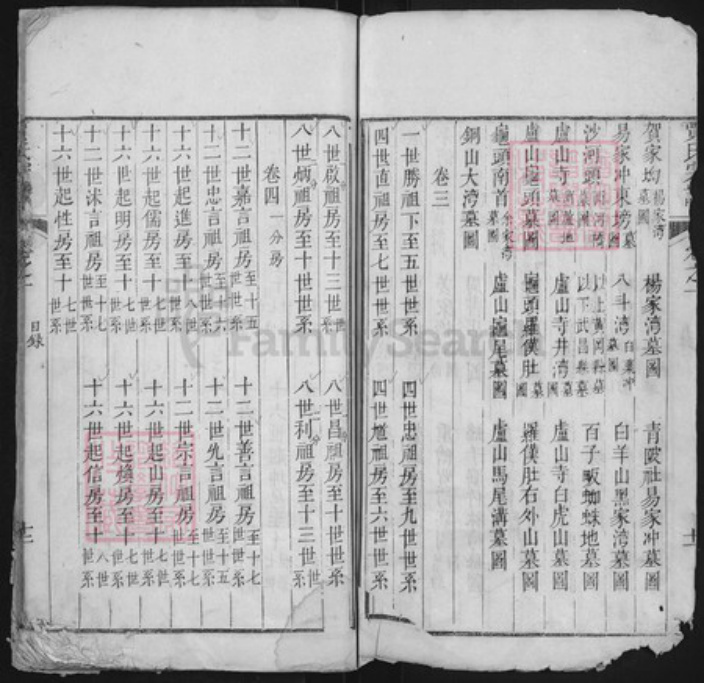 賀家坳楊家湾墓圖 楊家湾墓圖 青陂社易家冲墓圖
易家冲東塝墓圖 八斗湾 白羊山黑家湾墓圖
沙河頭 以上黄岡縣墓 以下武昌縣墓 百子畈蜘蛛地墓圖
盧山寺 盧山寺井湾墓圖 盧山寺白虎山墓圖
盧山龜頭墓圖 龜頭羅僕肚墓圖 羅僕肚右外山墓圖
龜頭南首余家湾墓圖 盧山龜尾墓圖 盧山馬尾溝墓圖
銅山大湾墓圖
卷三
一世勝祖下至五世世系 四世忠祖房至九世世系
四世直祖房至七世世系 四世尴祖房至六世世系
八世啟祖房至十三世世系 八世昌祖房至十世世系
八世炳祖房至十世世系 八世利祖房至十三世世系
卷四 一分房
十二世嘉言祖房至十五世世系 十二世善言祖房至十七世世系
十二世忠言祖房至十六世世系 十二世先言祖房至十五世世系
十六世起進房至十八世世系 十二世宗言祖房至十七世世系
十六世起儒房至十七世世系 十六世起山房至十七世世系
十六世起明房至十七世世系 十六世起煥房至十七世世系
十二世沬言祖房至十七世世系 十六世起信房至十八世世系
十六世起性房至十七世世系
目錄
十一
FamilySearch